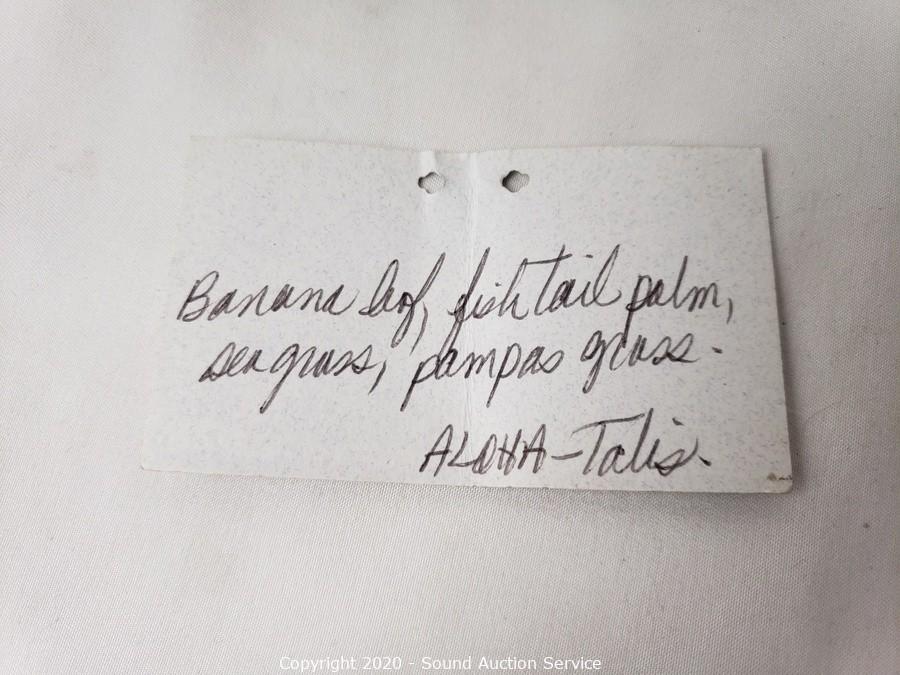 Banana leaf, fish tail palm,
sea grass, pampas grass.
ALOHA - Talis.
Copyright 2020 - Sound Auction Service